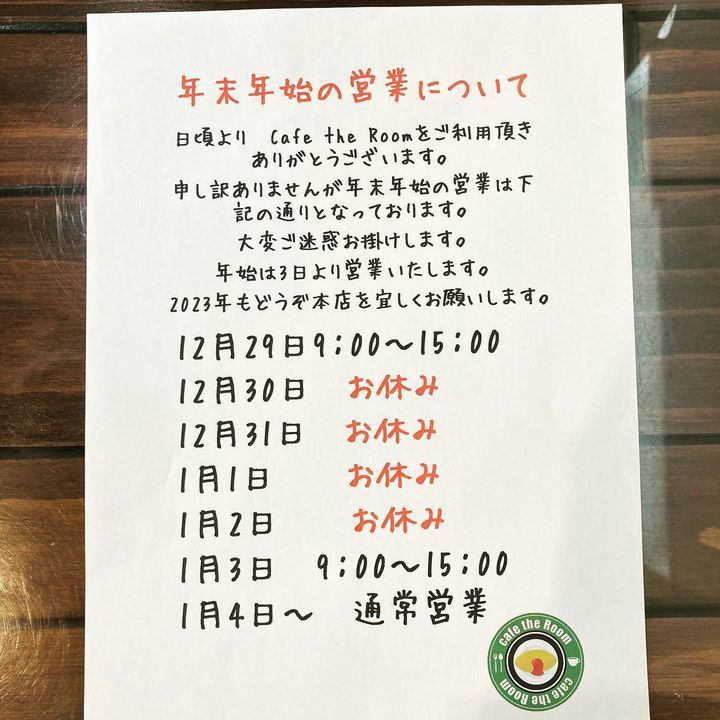 年末年始の営業について
日頃より Cafe the Roomをご利用頂き
ありがとうございます。
申し訳ありませんが年末年始の営業は下
記の通りとなっております。
大変ご迷惑お掛けします。
年始は3日より営業いたします。
2023年もどうぞ本店を宜しくお願いします。
12月29日9:00〜15:00
12月30日 お休み
12月31日 お休み
1月1日 お休み
1月2日 お休み
1月3日 9:00〜15:00
1月4日〜 通常営業
cafe the Room
cafe the Room